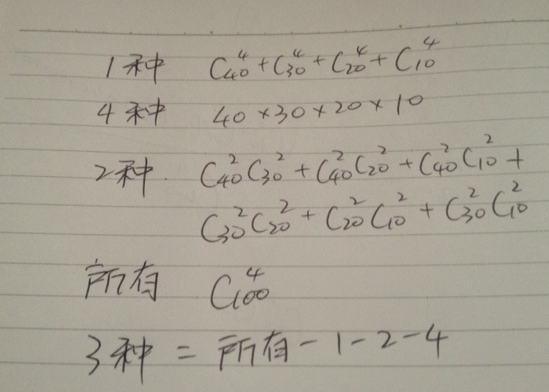 1种 C₄₀⁴+C₃₀⁴+C₂₀⁴+C₁₀⁴
4种 40×30×20×10
2种. C₄₀²C₃₀²+C₄₀²C₂₀²+C₄₀²C₁₀²+
C₃₀²C₂₀²+C₂₀²C₁₀²+C₃₀²C₁₀²
所有 C₁₀₀⁴
3种=所有-1-2-4